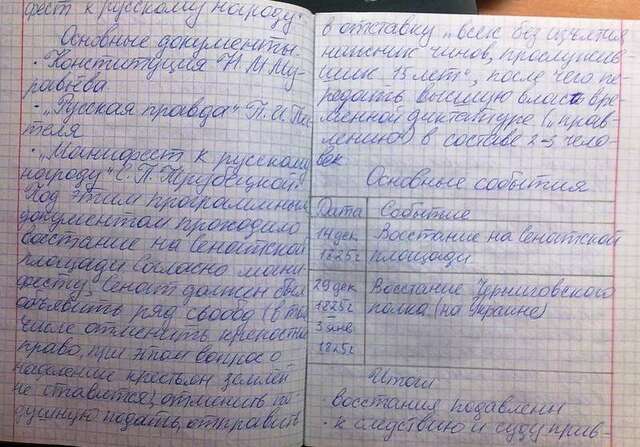 фест к русскому народу".
Основные документы
• Конституция Н.М.Му-
равьёва
• "Русская правда" П.И.Пес-
теля
• "Манифест к русскому
народу" С.П.Трубецкой.
Под этим программным
документом проходило
восстание на Сенатской
площади. Согласно мани-
фесту, Сенат должен был
объявить ряд свобод (в том
числе отменить крепостное
право, при этом вопрос о
наделении крестьян землёй
не ставился, отменить по-
душную подать, отправить
в отставку "всех без изъятия
нижних чинов, прослужив-
ших 15 лет", после чего пе-
редать высшую власть вре-
менной диктатуре ("прав-
лению") в составе 2-3 чело-
век
Основные события
Дата Событие
14 дек Восстание на Сенатской
1825г площади
29 дек Восстание Черниговского
1825г полка (на Украине)
3 янв
1825г
Итоги
• восстания подавлены
• к следствию и суду прив-